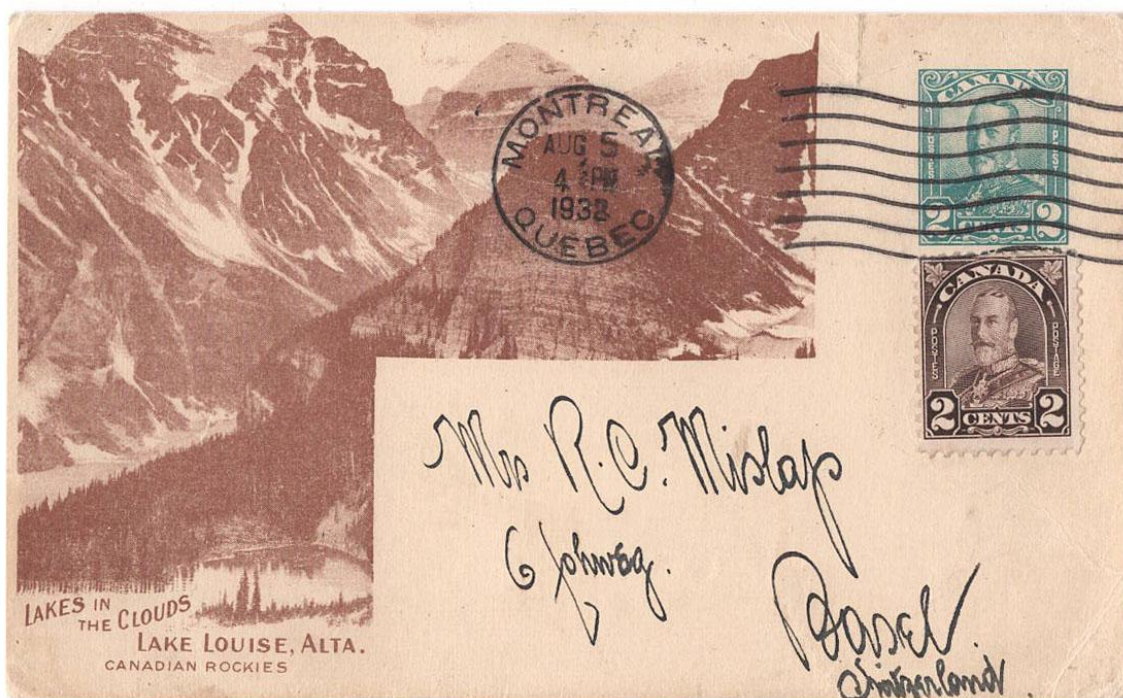 MONTREAL
AUG 5
4 PM
1932
QUEBEC
CANADA
POSTES
2 CENTS 2
CANADA
POSTES
POSTAGE
2 CENTS 2
Mrs R. C. Mislap
6
Basel.
Switzerland
LAKES IN
THE CLOUDS
LAKE LOUISE, ALTA.
CANADIAN ROCKIES